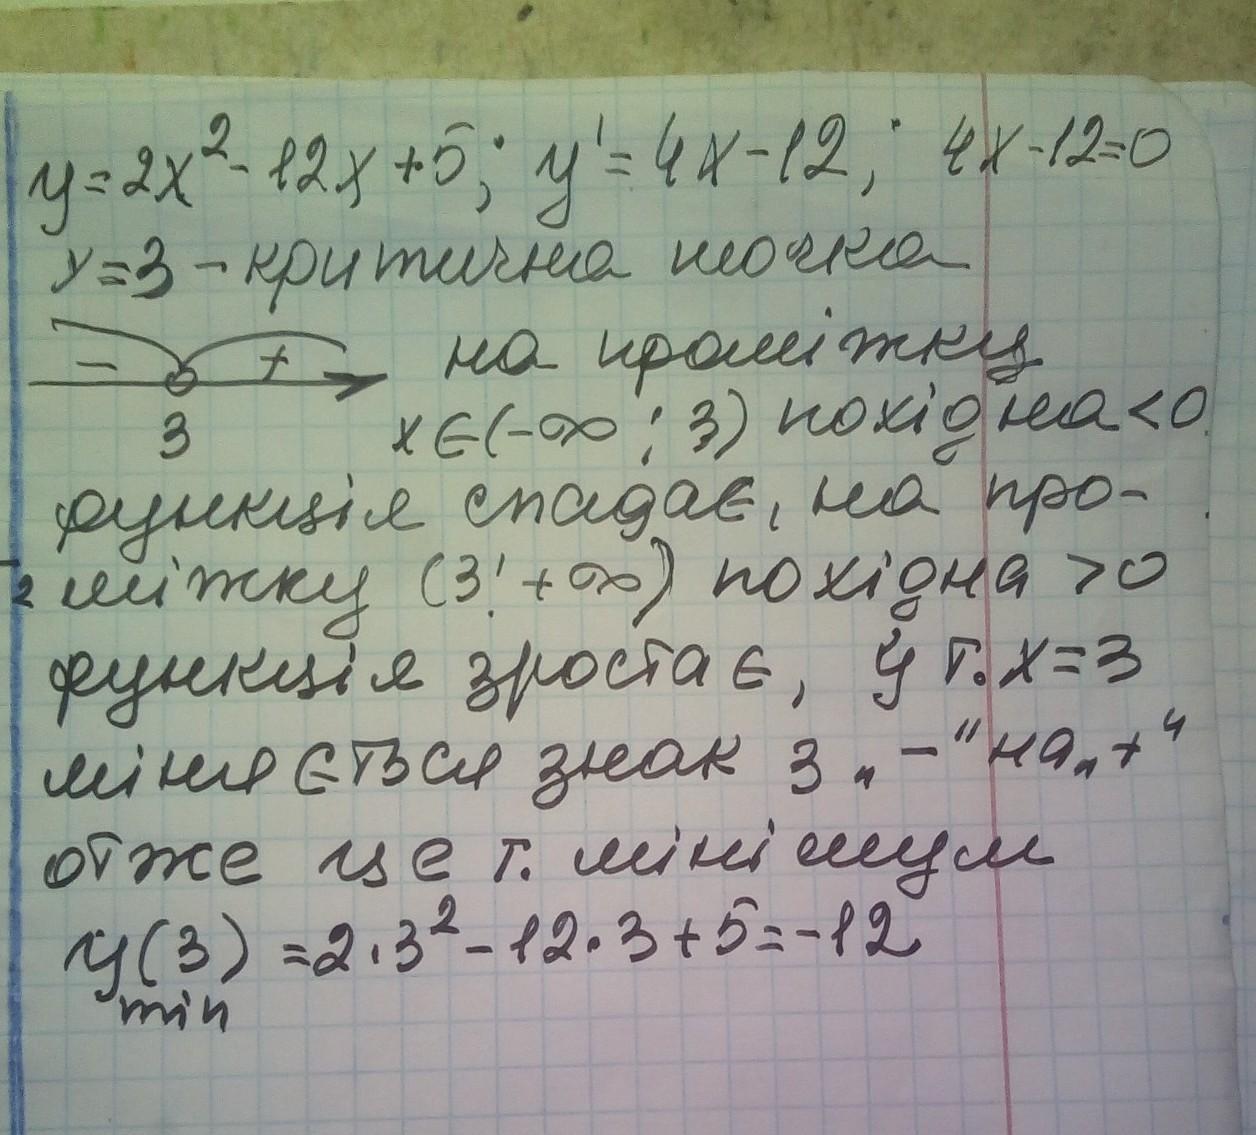 y=2x²-12x+5; y'=4x-12; 4x-12=0
x=3 - критична точка
- + на проміжку
3 x∈(-∞; 3) похідна<0
функція спадає, на про-
міжку (3; +∞) похідна >0
функція зростає, у т. x=3
міняється знак з „-" на „+"
отже це т. мінімум
y(3) =2·3²-12·3+5=-12
min